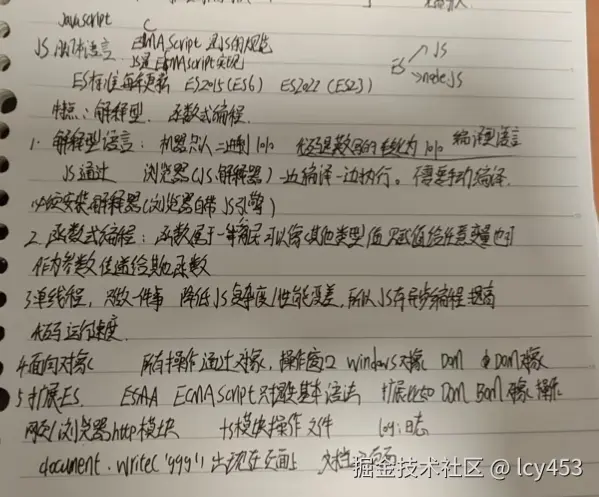 Javascript
JS 脚本语言 ECMAScript 是JS的规范
JS是ECMAScript实现
ES标准每年更新 ES2015(ES6) ES2022(ES23)
ES JS
nodeJS
特点: 解释型. 函数式编程.
1. 解释型语言: 机器只认二进制 1010 代码 1010 编译型语言
JS 通过 浏览器(JS解释器) 一边编译一边执行。不需要手动编译.
必须安装解释器(浏览器自带JS引擎)
2. 函数式编程: 函数属于一等公民 可以像其他类型值 赋值给任意变量也可
作为参数传递给其他函数
3 单线程, 只做一件事 降低JS复杂度/性能变差, 所以JS有异步编程 提高
代码运行速度.
4 面向对象 所有操作通过对象, 操作窗口 windows对象 Dom Dom对象
5 扩展ES. ECMAScript只提供基本语法 扩展比如 Dom Bom 对象 操作
网页/浏览器 http模块 fs模块操作文件 log:日志
document.write('999') 出现在页面上
掘金技术社区 @ lcy453